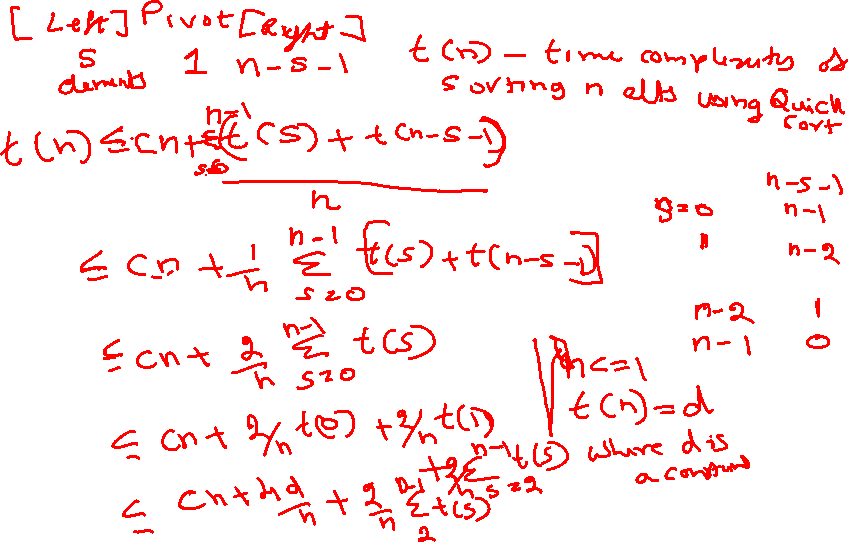 [Left] Pivot [Right]
s 1 n-s-1
elements
t(n) – time complexity of
sorting n elts using Quick
sort
t(n) ≤ cn + n-1 Σ s=0 (t(s) + t(n-s-1)) / n
≤ cn + 1/n n-1 Σ s=0 [t(s) + t(n-s-1)]
≤ cn + 2/n n-1 Σ s=0 t(s)
≤ cn + 2/n t(0) + 2/n t(1) + 2/n n-1 Σ s=2 t(s)
≤ cn + 4d/n + 2/n n-1 Σ 2 t(s)
n-s-1
s=0 n-1
1 n-2
n-2 1
n-1 0
n<=1
t(n)=d
where d is
a constant